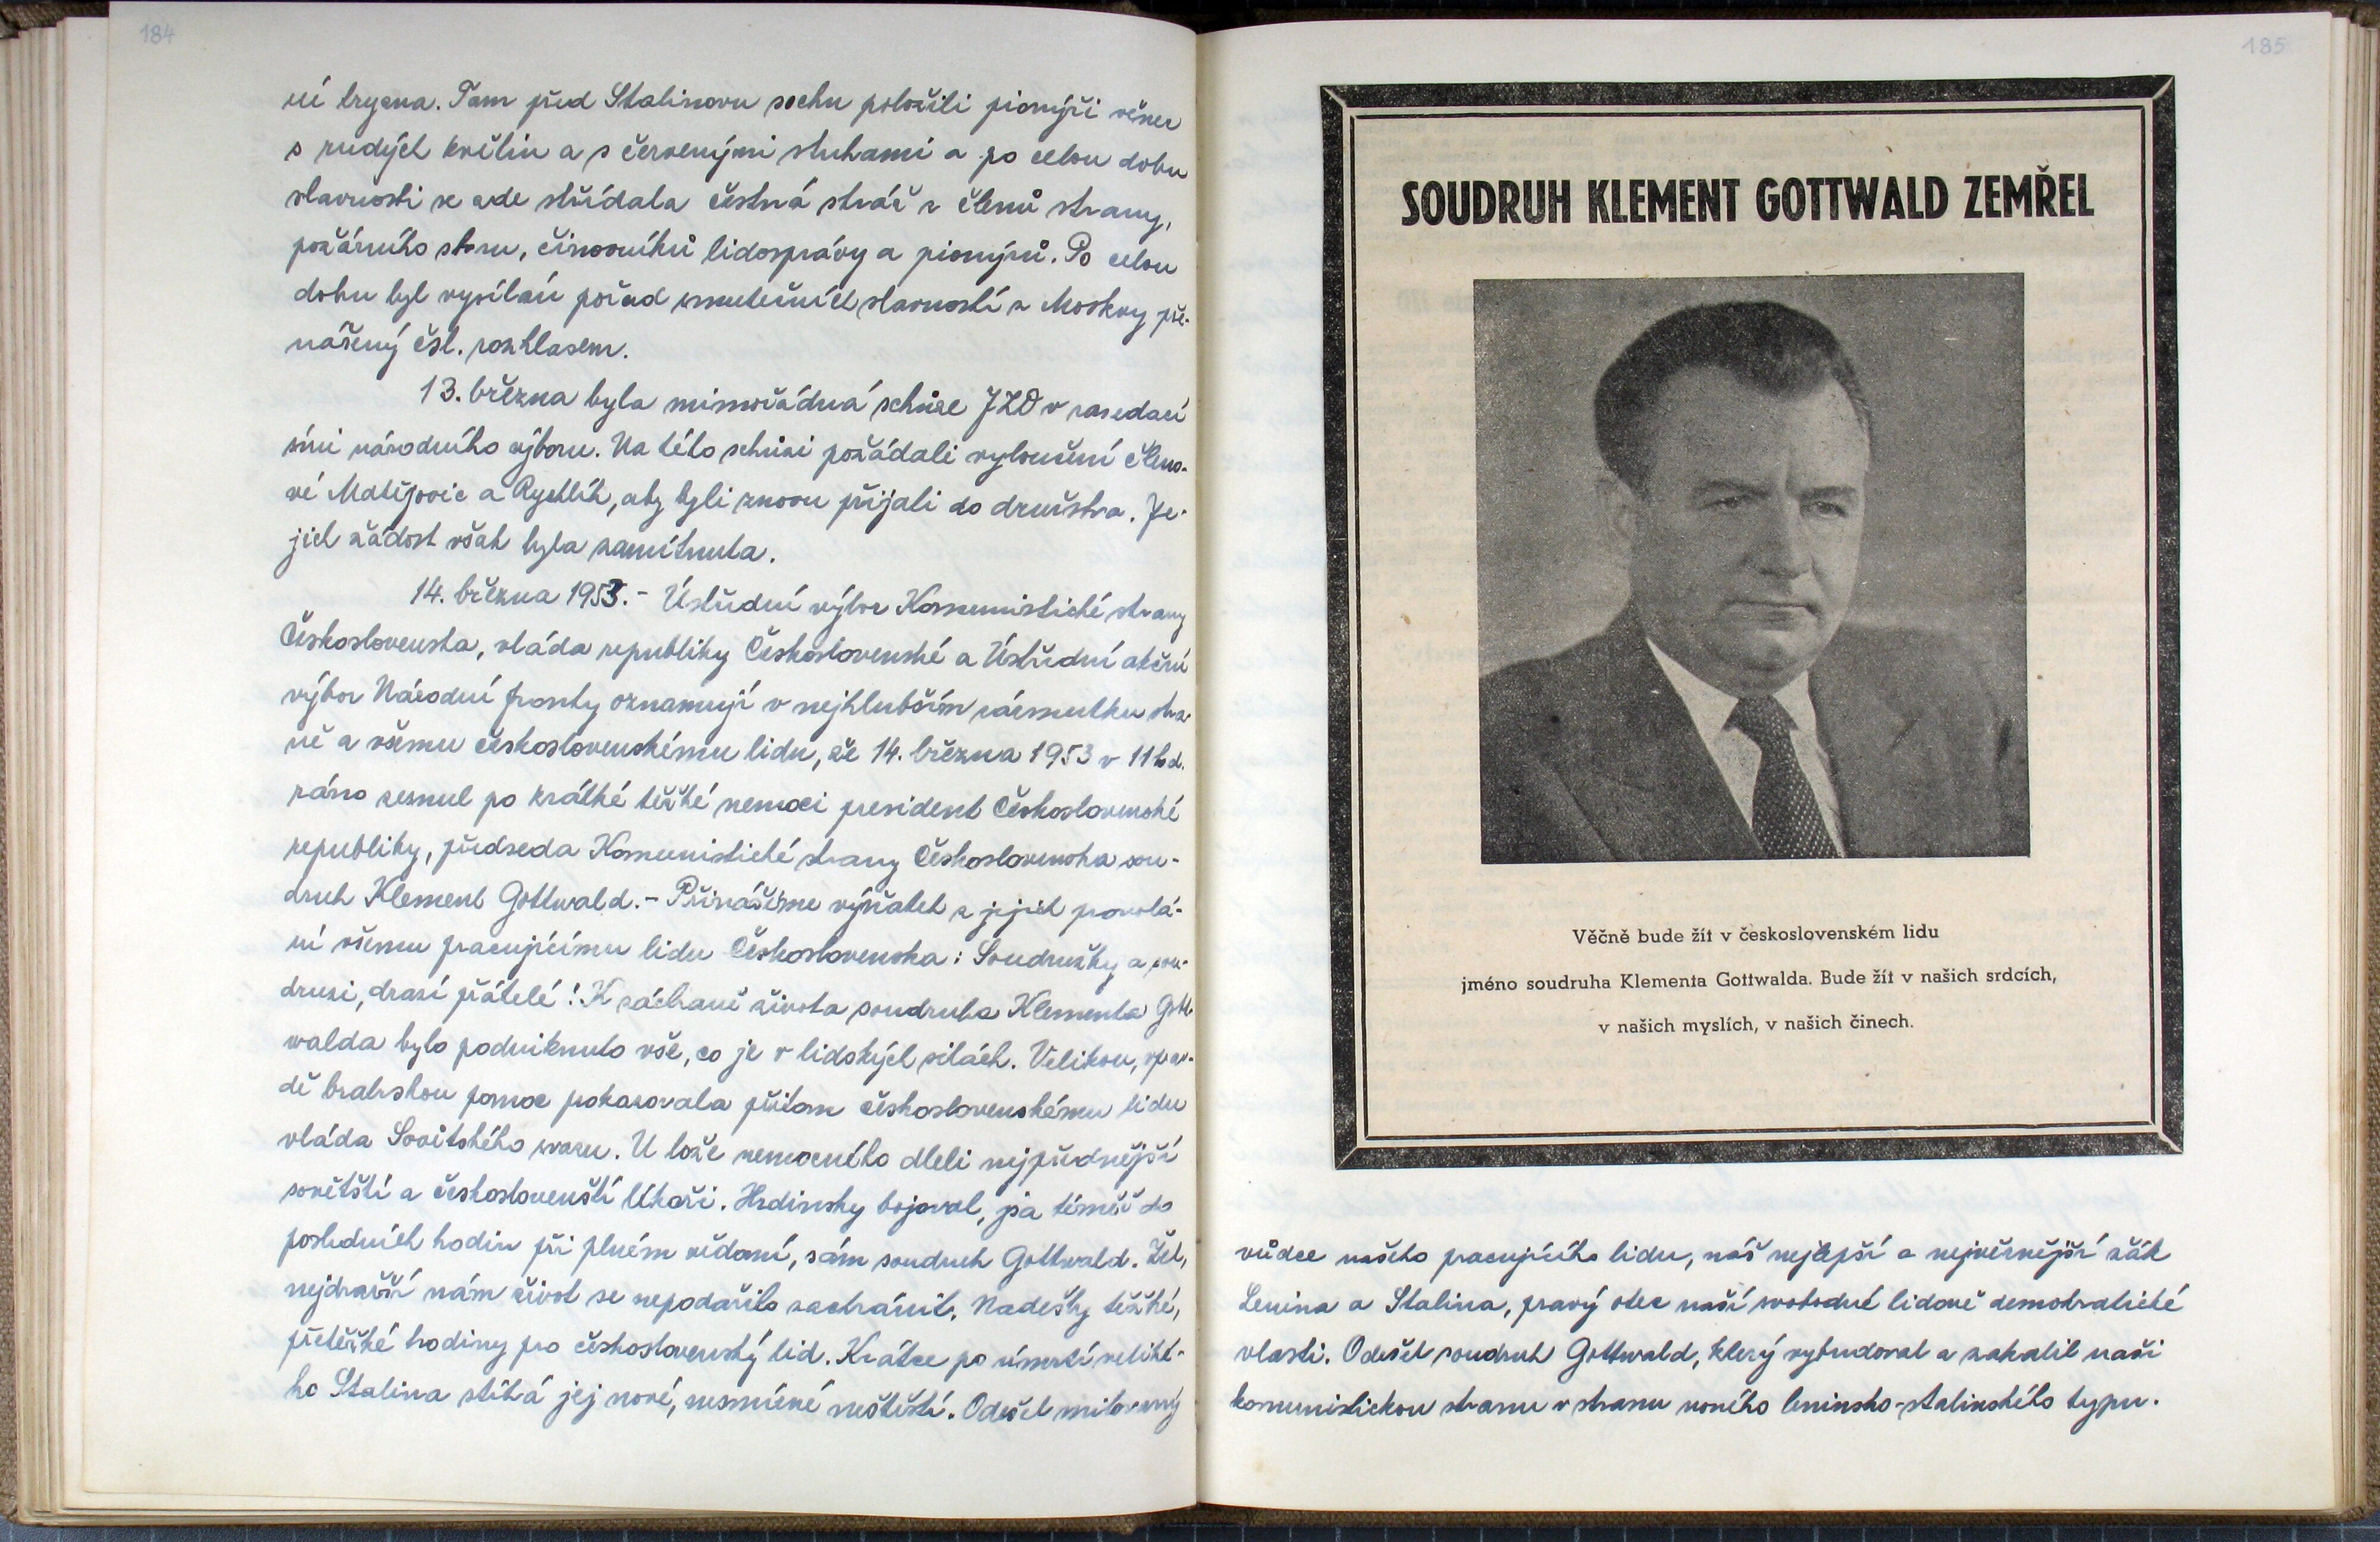 184
ní tryzna. Tam před Stalinovu sochu položili pionýři věnec
s rudých květin a s červenými stuhami a po celou dobu
slavnosti se zde střídala čestná stráž z členů strany,
požárního sboru, činovníků lidosprávy a pionýrů. Po celou
dobu byl vysílán pořad smutečních slavností z Moskvy pře-
nášený čsl. rozhlasem.
13. března byla mimořádná schůze JZD v zasedací
síni národního výboru. Na této schůzi požádali vyloučení členo-
vé Matějovic a Rychlík, aby byli znovu přijali do družstva. Je-
jich žádost však byla zamítnuta.
14. března 1953. - Ústřední výbor Komunistické strany
Československa, vláda republiky Československé a Ústřední akční
výbor Národní fronty oznamují v nejhlubším zármutku stra-
ně a všemu československému lidu, že 14. března 1953 v 11 hod.
ráno zesnul po krátké těžké nemoci president Československé
republiky, předseda Komunistické strany Československa sou-
druh Klement Gottwald. - Přinášíme výňatek z jejich provolá-
ní všemu pracujícímu lidu Československa: Soudružky a sou-
druzi, drazí přátelé! K záchraně života soudruha Klementa Gott-
walda bylo podniknuto vše, co je v lidských silách. Velikou, vprav-
dě bratrskou pomoc pokazovala přitom československému lidu
vláda Sovětského svazu. U lože nemocného dleli nejpřednější
sovětští a českoslovenští lékaři. Hrdinsky bojoval, jsa téměř do
posledních hodin při plném vědomí, sám soudruh Gottwald. Žel,
nejdražší nám život se nepodařilo zachránit. Nadešly těžké,
přetěžké hodiny pro československý lid. Krátce po úmrtí veliké-
ho Stalina stíhá jej nové, nesmírné neštěstí. Odešel milovaný
185
SOUDRUH KLEMENT GOTTWALD ZEMŘEL
Věčně bude žít v československém lidu
jméno soudruha Klementa Gottwalda. Bude žít v našich srdcích,
v našich myslích, v našich činech.
vůdce našeho pracujícího lidu, náš nejlepší a nejvěrnější žák
Lenina a Stalina, pravý otec naší svobodné lidově demokratické
vlasti. Odešel soudruh Gottwald, který vybudoval a zakalil naši
komunistickou stranu v stranu nového leninsko-stalinského typu.